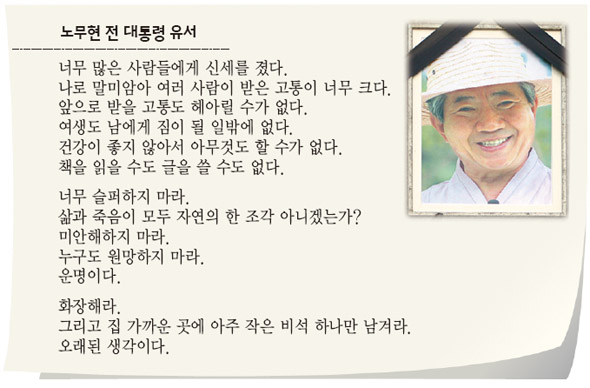 노무현 전 대통령 유서
너무 많은 사람들에게 신세를 졌다.
나로 말미암아 여러 사람이 받은 고통이 너무 크다.
앞으로 받을 고통도 헤아릴 수가 없다.
여생도 남에게 짐이 될 일밖에 없다.
건강이 좋지 않아서 아무것도 할 수가 없다.
책을 읽을 수도 글을 쓸 수도 없다.
너무 슬퍼하지 마라.
삶과 죽음이 모두 자연의 한 조각 아니겠는가?
미안해하지 마라.
누구도 원망하지 마라.
운명이다.
화장해라.
그리고 집 가까운 곳에 아주 작은 비석 하나만 남겨라.
오래된 생각이다.